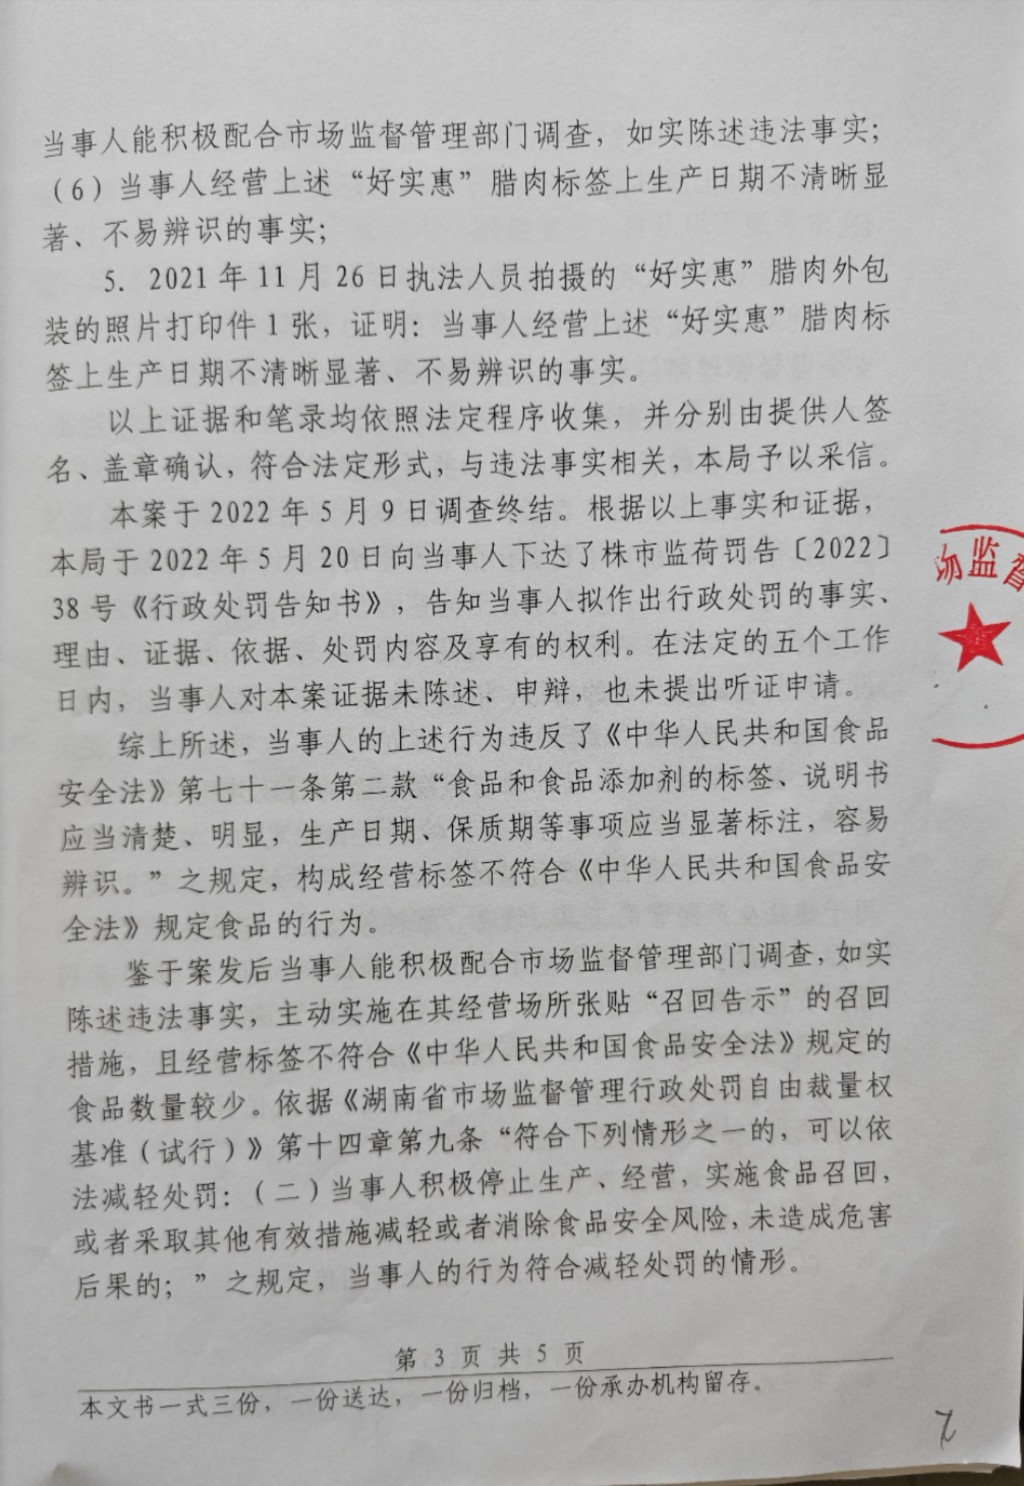 当事人能积极配合市场监督管理部门调查，如实陈述违法事实；
（6）当事人经营上述“好实惠”腊肉标签上生产日期不清晰显
著、不易辨识的事实；
5．2021年11月26日执法人员拍摄的“好实惠”腊肉外包
装的照片打印件1张，证明：当事人经营上述“好实惠”腊肉标
签上生产日期不清晰显著、不易辨识的事实。
以上证据和笔录均依照法定程序收集，并分别由提供人签
名、盖章确认，符合法定形式，与违法事实相关，本局予以采信。
本案于2022年5月9日调查终结。根据以上事实和证据，
本局于2022年5月20日向当事人下达了株市监荷罚告〔2022〕
38号《行政处罚告知书》，告知当事人拟作出行政处罚的事实、
理由、证据、依据、处罚内容及享有的权利。在法定的五个工作
日内，当事人对本案证据未陈述、申辩，也未提出听证申请。
综上所述，当事人的上述行为违反了《中华人民共和国食品
安全法》第七十一条第二款“食品和食品添加剂的标签、说明书
应当清楚、明显，生产日期、保质期等事项应当显著标注，容易
辨识。”之规定，构成经营标签不符合《中华人民共和国食品安
全法》规定食品的行为。
鉴于案发后当事人能积极配合市场监督管理部门调查，如实
陈述违法事实，主动实施在其经营场所张贴“召回告示”的召回
措施，且经营标签不符合《中华人民共和国食品安全法》规定的
食品数量较少。依据《湖南省市场监督管理行政处罚自由裁量权
基准（试行）》第十四章第九条“符合下列情形之一的，可以依
法减轻处罚：（二）当事人积极停止生产、经营，实施食品召回，
或者采取其他有效措施减轻或者消除食品安全风险，未造成危害
后果的；”之规定，当事人的行为符合减轻处罚的情形。
第 3 页 共 5 页
本文书一式三份，一份送达，一份归档，一份承办机构留存。
场监督